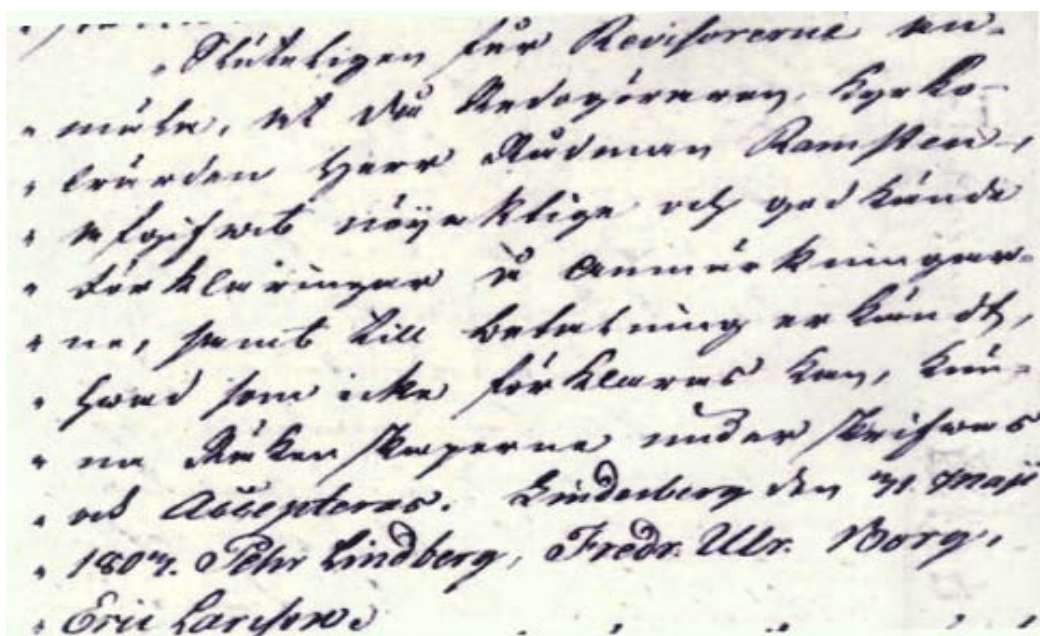 " Sluteligen får Revisorerne an-
" mäla, at då Redogöraren, Kyrko-
" wärden Herr Rådman Ramsten,
" afgifwit nöyaktige och godkände
" förklaringar å Anmärkningar-
" ne, samt till betalning erkändt,
" hwad som icke förklaras kan, kun-
" na Räkenskaperne underskrifwas
" och Accepteras. Lindesberg den Maji
" 1807. Pehr Lindberg, Fredr. Ulr. Borg,
" Eric Larsson.